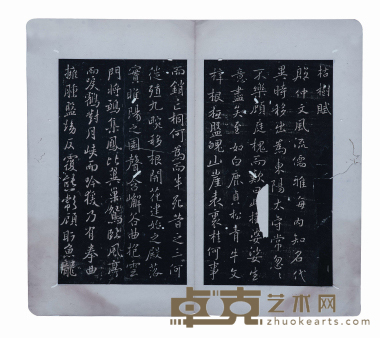 枯樹賦
殷仲文風流儒雅海內知名代
異時移出為東陽太守常忽忽
不樂顧庭槐而歎曰樹婆娑生
意盡矣至如白鹿貞松青牛文
梓根柢盤魄山崖表裏桂何事
而銷亡桐何為而半死昔之三河
徙植九畹移根開花建始之殿落
實睢陽之園聲含嶰谷曲抱雲
門將雛集鳳比翼巢鴛臨風亭
而唳鶴對月峽而吟猨乃有拳曲
擁腫盤坳反覆熊彪顧盼魚龍
卓克艺术网
zhuokearts.com